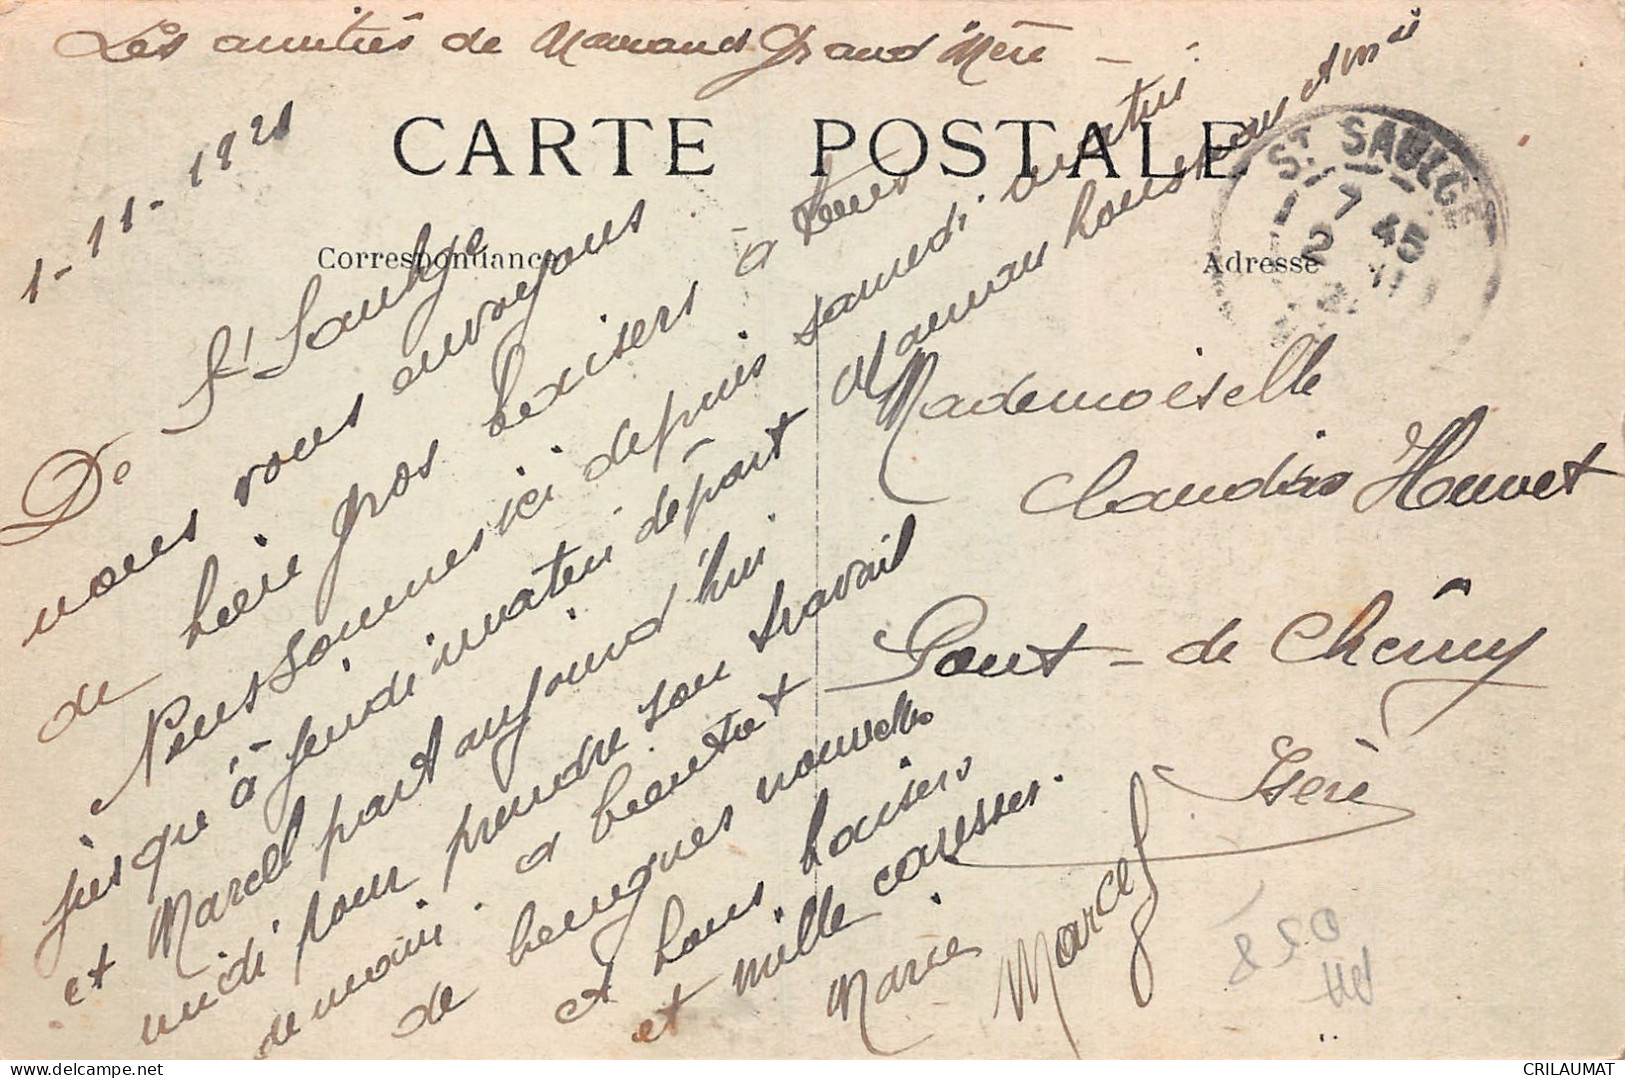 Les amitiés de Maman Grand Mère -
1-11-1921
CARTE POSTALE
Correspondance
Adresse
ST SAULGE
7 45
2 11
De St Saulge
nous vous envoyons
de bien gros baisers à tous
Nous sommes ici depuis samedi matin
jusqu'à jeudi matin départ Maman
et Marcel part aujourd'hui
midi pour prendre son travail
demain. à bientôt
de longues nouvelles
et bons baisers
et mille caresses.
Marie Marcel
Mademoiselle
Claudia
Pont-de Chéruy
Isère
850
delcampe.net
CRILAUMAT